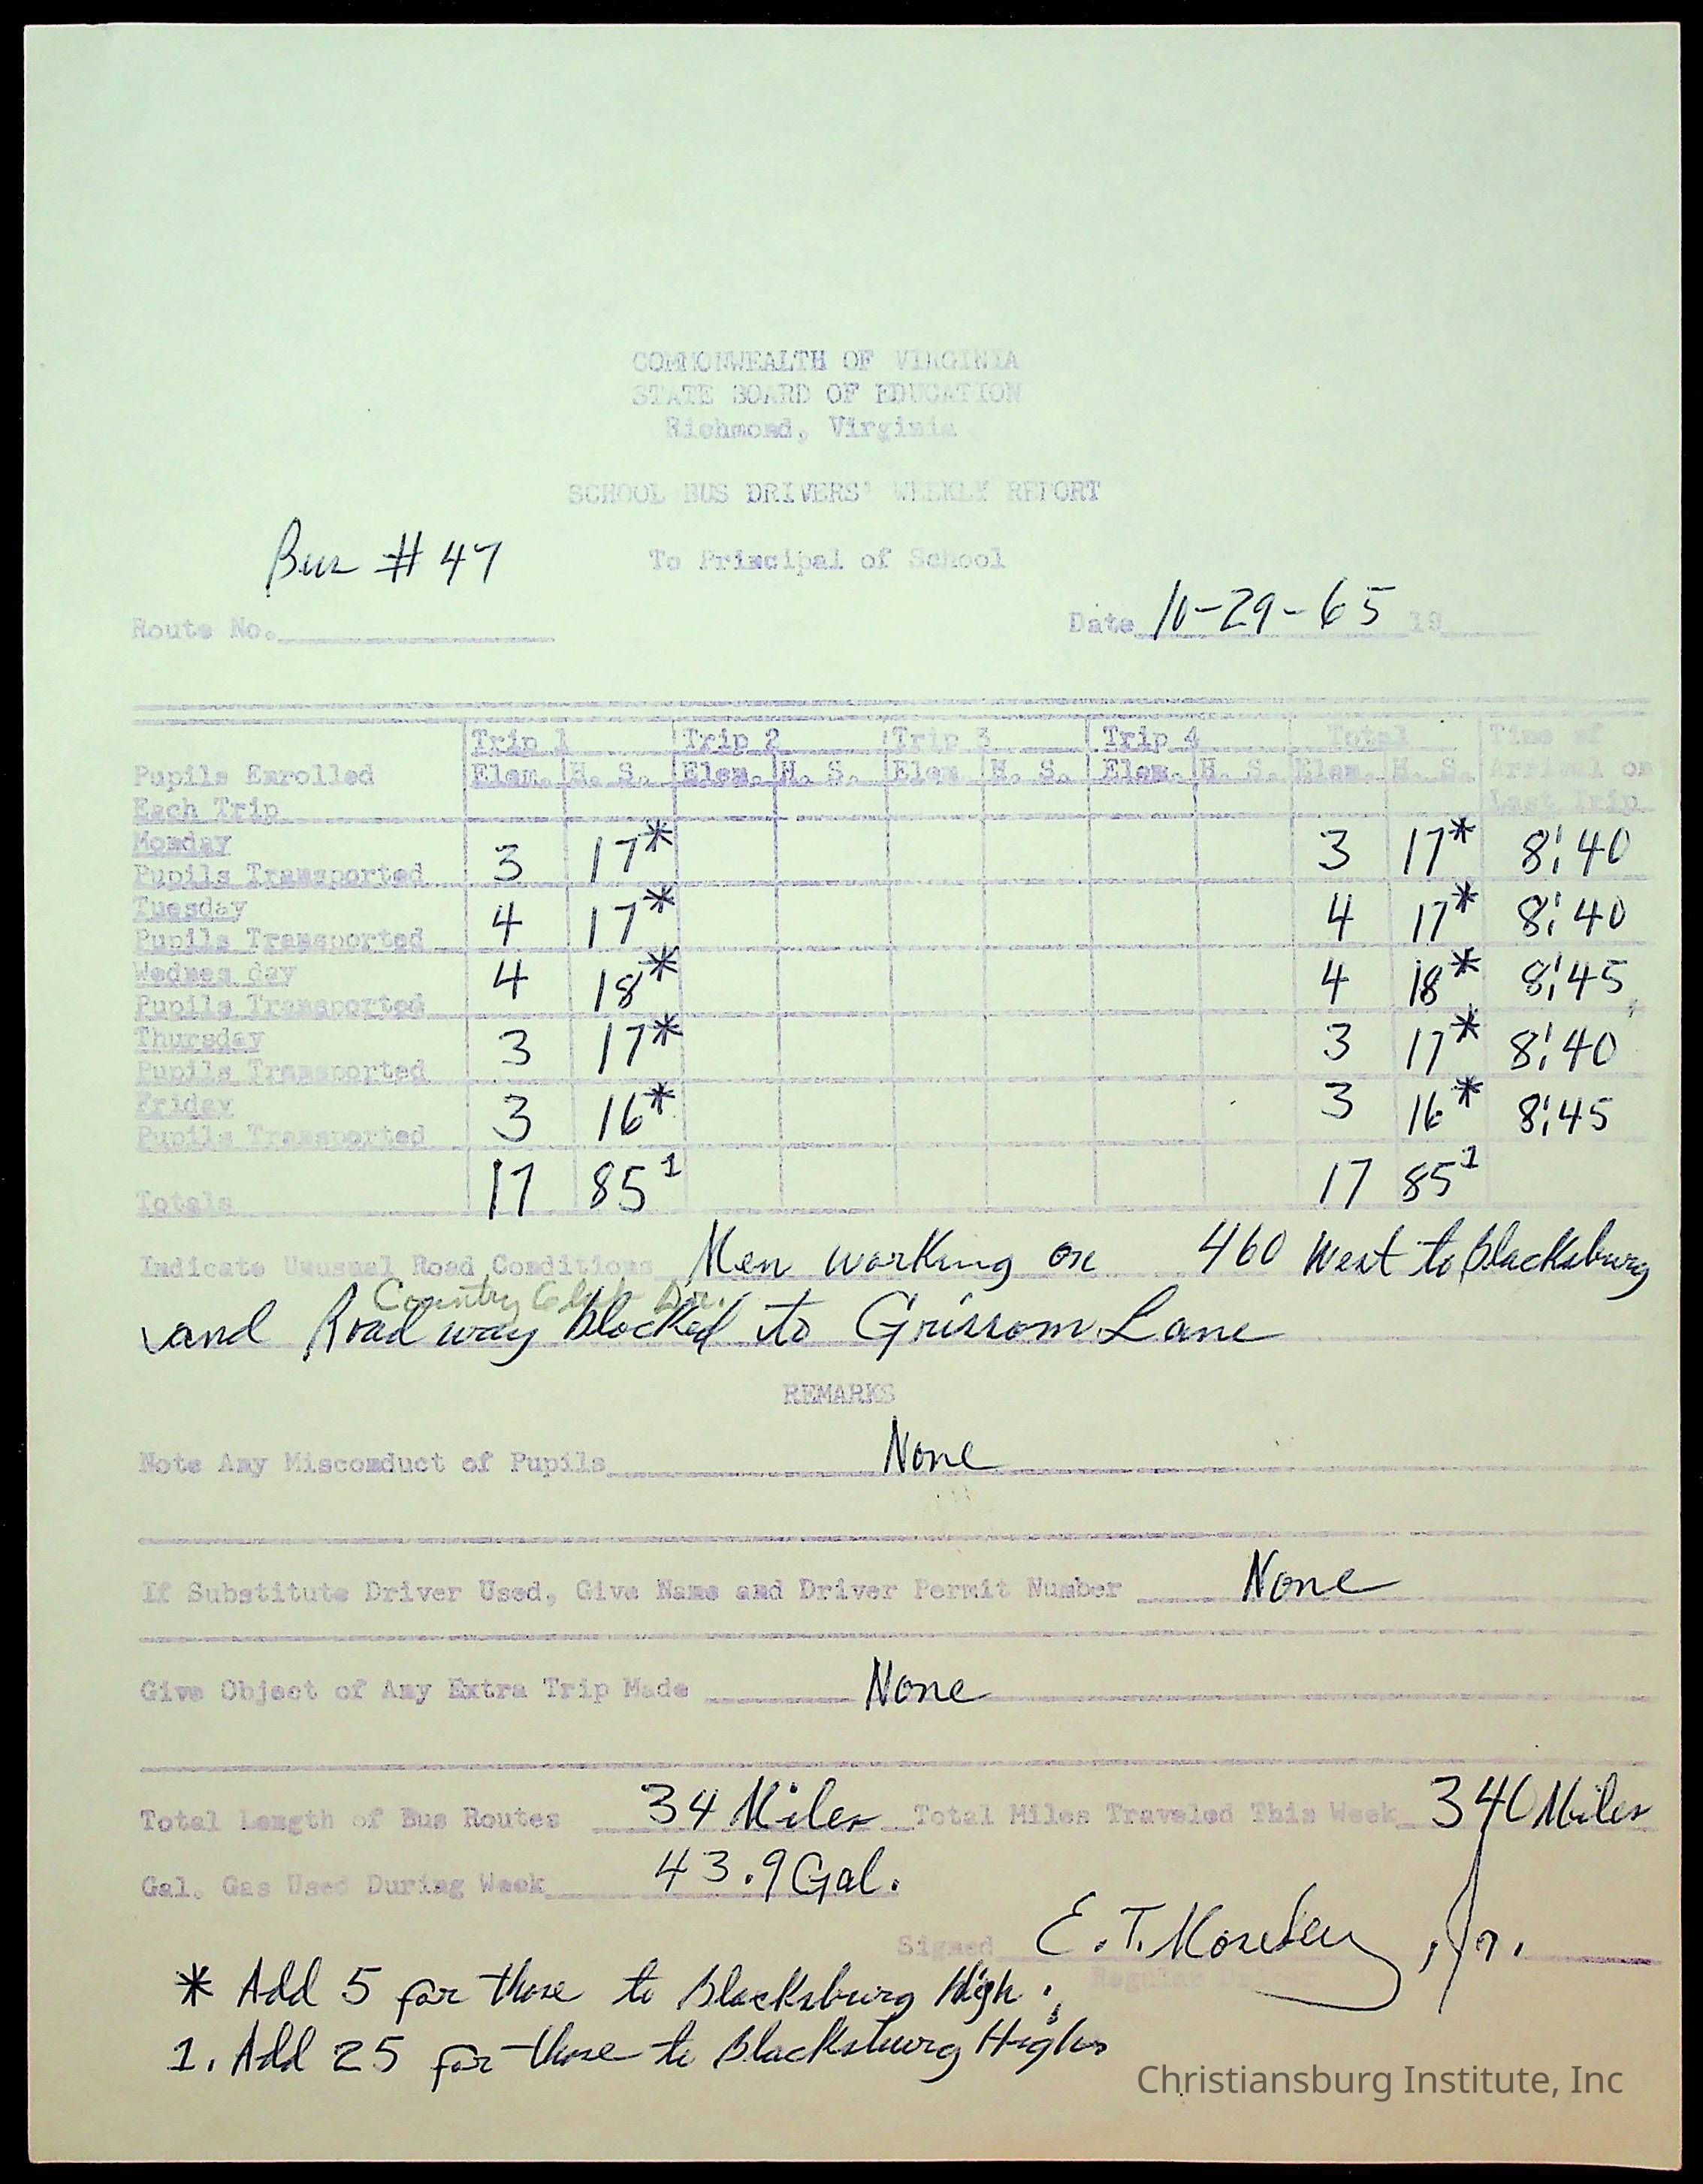 COMMONWEALTH OF VIRGINIA
STATE BOARD OF EDUCATION
Richmond, Virginia
SCHOOL BUS DRIVERS' WEEKLY REPORT
Bus # 47
To Principal of School
Route No. Date 10-29-65 19
Trip 1 Trip 2 Trip 3 Trip 4 Total Time of
Pupils Enrolled Elem. H. S. Elem. H. S. Elem. H. S. Elem. H. S. Elem. H. S. Arrival on
Each Trip Last Trip
Monday
Pupils Transported 3 17* 3 17* 8:40
Tuesday
Pupils Transported 4 17* 4 17* 8:40
Wednesday
Pupils Transported 4 18* 4 18* 8:45
Thursday
Pupils Transported 3 17* 3 17* 8:40
Friday
Pupils Transported 3 16* 3 16* 8:45
Totals 17 85¹ 17 85¹
Indicate Unusual Road Conditions Men working on 460 West to Blacksburg
Country Club Dr.
and Road way blocked to Grissom Lane
REMARKS
Note Any Misconduct of Pupils None
If Substitute Driver Used, Give Name and Driver Permit Number None
Give Object of Any Extra Trip Made None
Total Length of Bus Routes 34 Miles Total Miles Traveled This Week 340 Miles
Gal. Gas Used During Week 43.9 Gal.
Signed E. T. Moseley, Jr.
Regular
* Add 5 for those to Blacksburg High.;
1. Add 25 for those to Blacksburg High
Christiansburg Institute, Inc